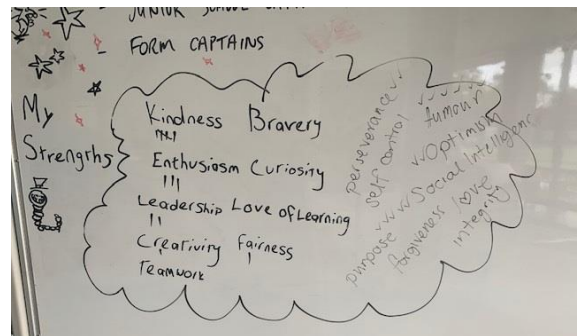 JUNIOR SCHOOL
- FORM CAPTAINS
My
Strengths
Kindness Bravery
Enthusiasm Curiosity
Leadership Love of Learning
Creativity Fairness
Teamwork
perseverance
self control
tumour
Optimism
Social Intelligenc
purpose
forgiveness love
integrity